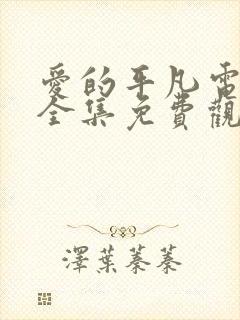 愛的平凡電
全集免費觀
澤葉蓁蓁